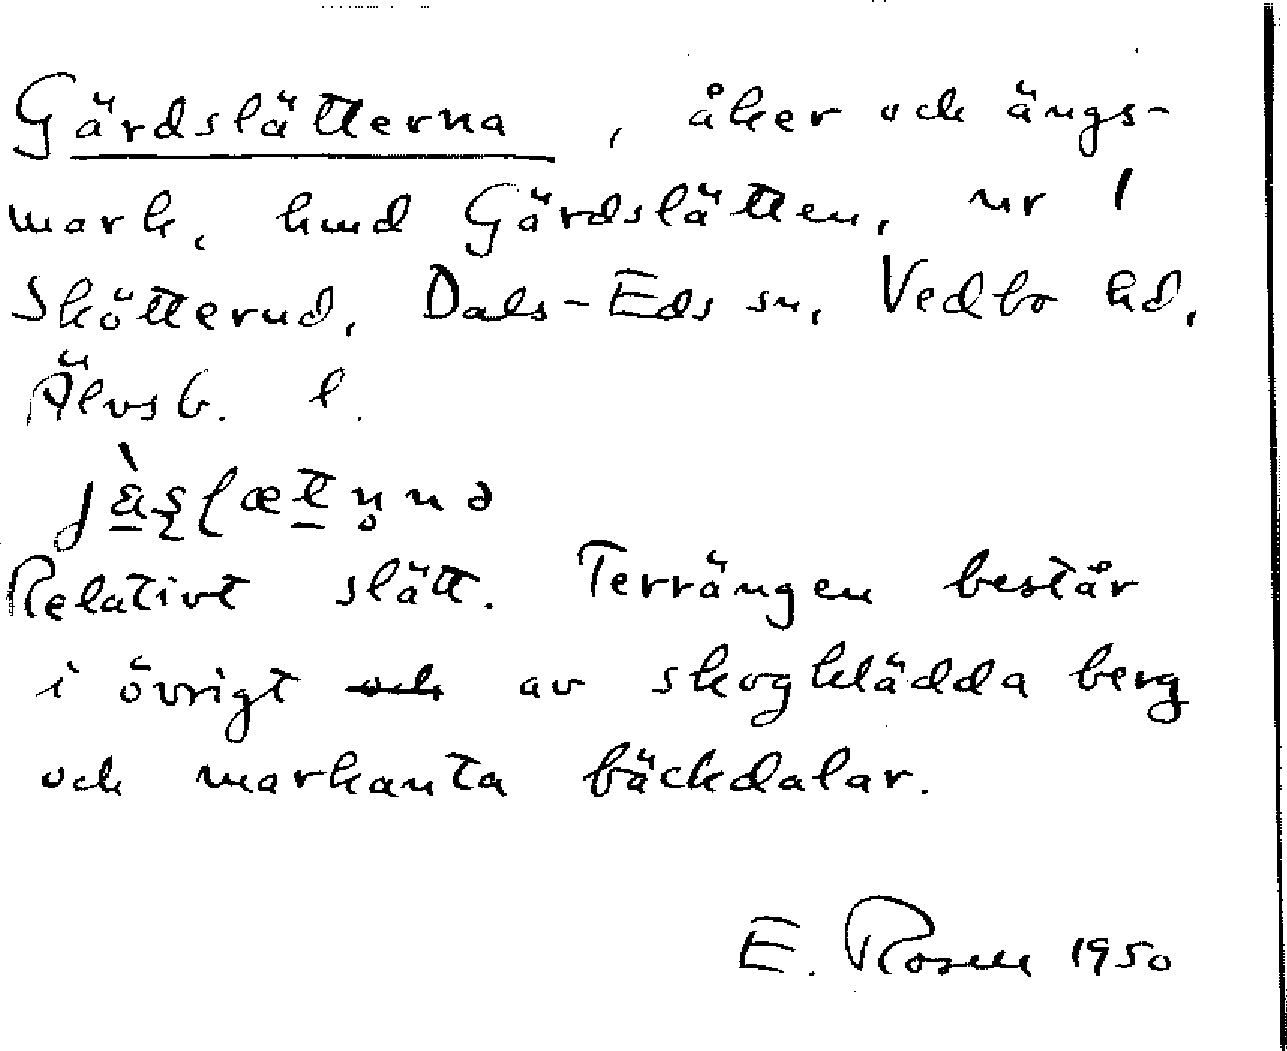 Gärdslätterna, åker och ängs-
mark, hmd Gärdslätten, nr 1
Skötterud, Dals-Eds sn, Vedbo hd,
Älvsb. l.
Relativt slätt. Terrängen består
i övrigt och av skogklädda berg
och markanta bäckdalar.
E. Rosell 1950